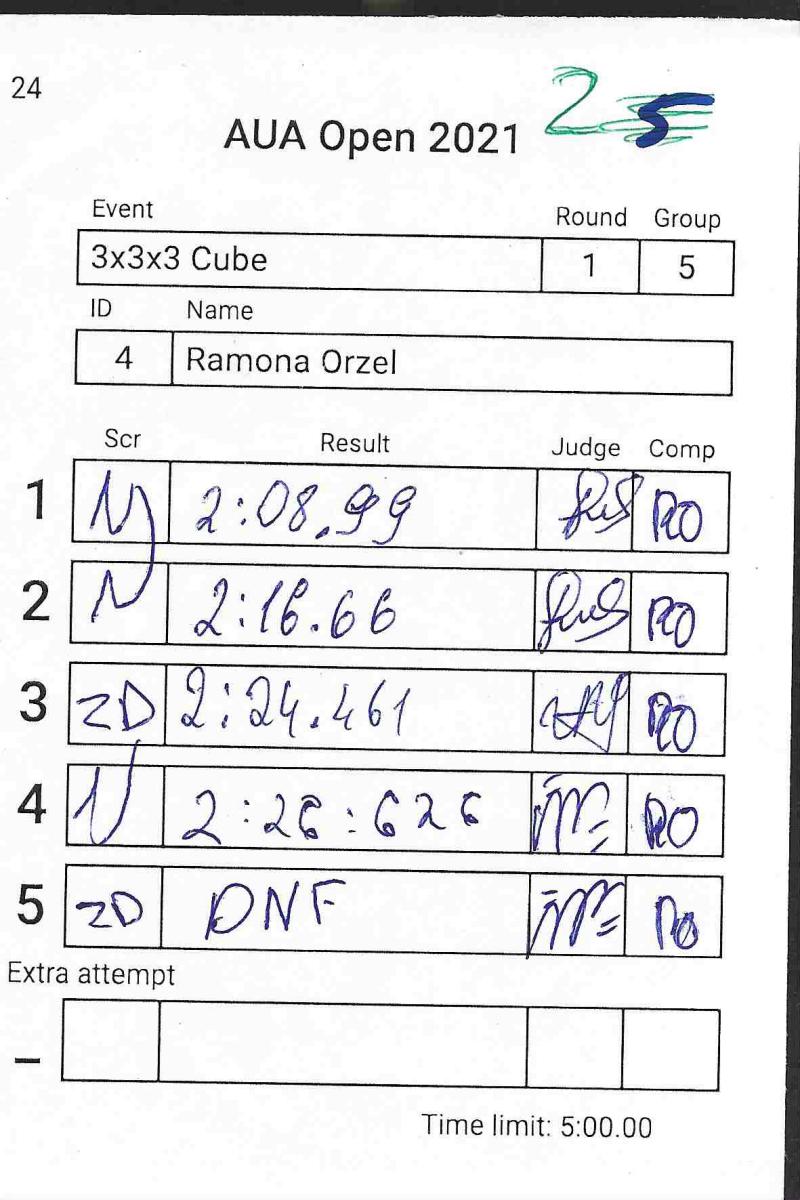 24
2 5
AUA Open 2021
Event Round Group
3x3x3 Cube 1 5
ID Name
4 Ramona Orzel
Scr Result Judge Comp
1 2:08.99 RO
2 2:16.66 RO
3 ZD 2:24.461 RO
4 2:26:626 RO
5 ZD DNF RO
Extra attempt
–
Time limit: 5:00.00